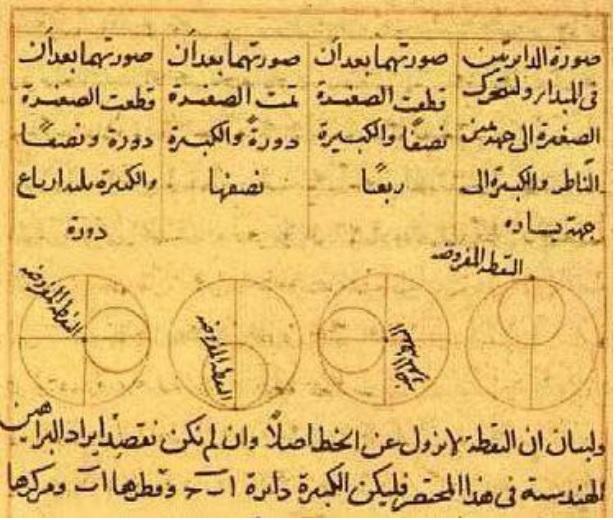 صورة الدائرتين
فى المبدا ولتتحرك
الصغيرة الى جهة يمين
الناظر والكبيرة الى
جهة يساره
صورتهما بعد أن
قطعت الصغيرة
نصفًا والكبيرة
ربعًا
صورتهما بعد أن
تمت الصغيرة
دورةً والكبيرة
نصفها
صورتهما بعد أن
قطعت الصغيرة
دورة ونصفًا
والكبيرة ثلثة ارباع
دورة
النقطة المفروضة
النقطة المفروضة
النقطة المفروضة
ولبيان ان النقطة لا تزول عن الخط اصلًا وان لم نكن نقصد ايراد البراهين
الهندسية فى هذا المختصر فليكن الكبيرة دائرة اب‍ـ وقطرها اب ومركزها